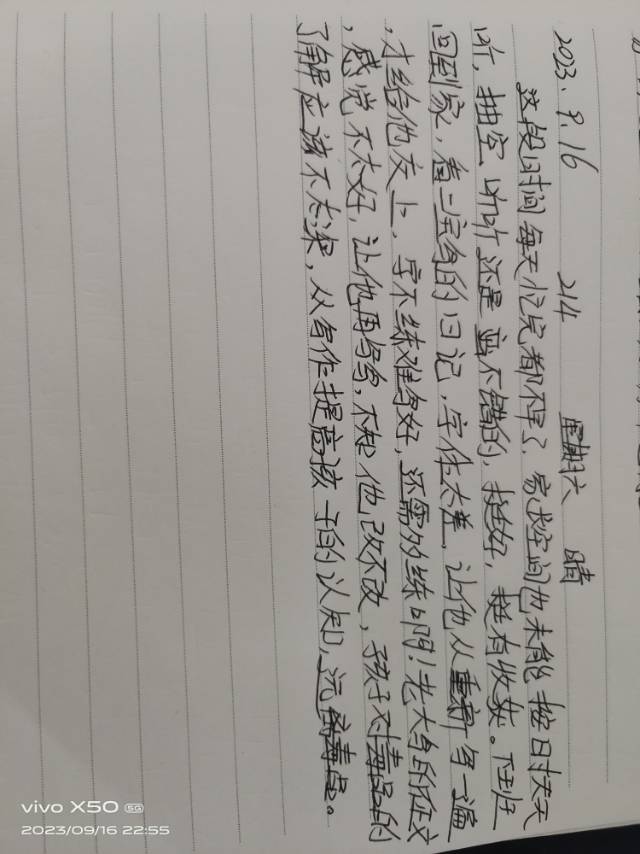 2023.9.16 214 星期六 晴
这段时间每天忙完都不早了,家长空间也未能按时天天
听,抽空听听还是蛮不错的,挺好,挺有收获。下班
回到家,看二宝写的日记,字体太差,让他从重新写一遍
,才给他交上,字不练难写好,还需多练啊!老大写的征文
,感觉不太好,让他再写写,不知他改不改,孩子对毒品的
了解应该不太深,从写作提高孩子的认知,远离毒品。
vivo X50 5G
2023/09/16 22:55